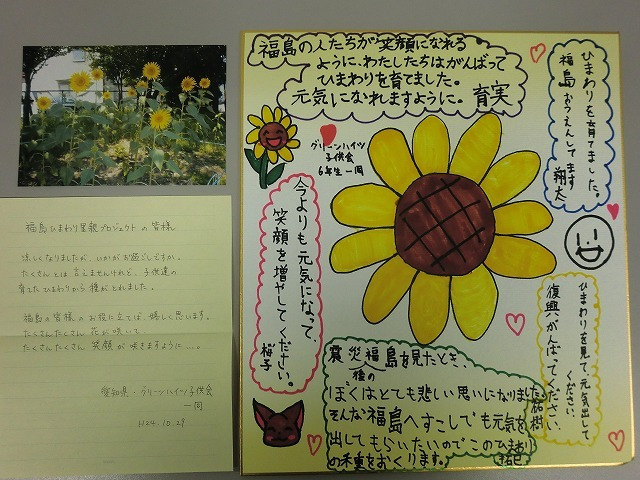 福島ひまわり里親プロジェクトの皆様
涼しくなりましたが、いかがお過ごしですか。
たくさんとは言えませんけれど、子供達の
育てたひまわりから種がとれました。
福島の皆様のお役に立てば、嬉しく思います。
たくさんたくさん 花が咲いて、
たくさんたくさん 笑顔が咲きますように…。
愛知県・グリーンハイツ子供会
一同
H24.10.29
福島の人たちが笑顔になれる
ように、わたしたちはがんばって
ひまわりを育てました。
元気になれますように。育実
グリーンハイツ
子供会
6年生一同
ひまわりを育てました。
福島おうえんしてます
翔太
今よりも元気になって、
笑顔を増やしてください。
桜子
ひまわりを見て、元気出して
ください。
復興、がんばってください。
祐樹
震災後の福島を見たとき、
ぼくはとても悲しい思いになりました。
そんな福島へすこしでも元気を
出してもらいたいのでこのひまわり
の種をおくります。
拓巳